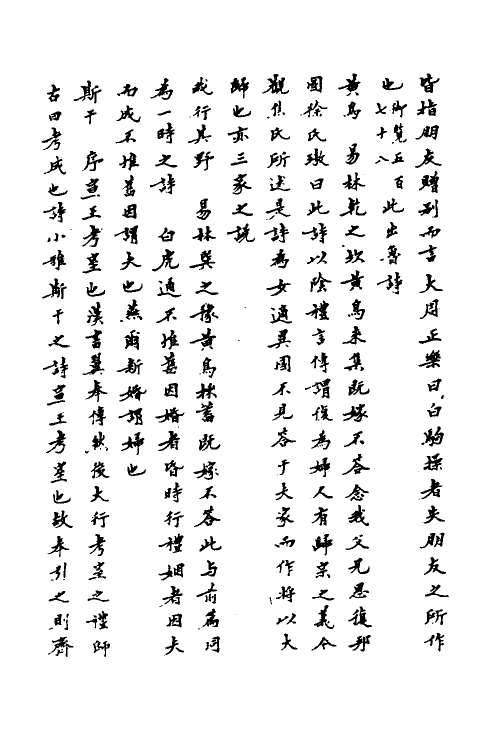 皆指朋友贈别而言大周正樂曰白駒操者失朋友之所作
也御覽五百七十八此出魯詩
黃鳥　易林乾之坎黃鳥來集既嫁不荅念我父兄思復邦
國徐氏璈曰此詩以陰禮言傳謂復為婦人有歸宗之義今
觀焦氏所述是詩為女適異國不見荅于夫家而作將以大
歸也亦三家之說
我行其野　易林巽之豫黃鳥採蓄既嫁不荅此与前篇同
為一時之詩　白虎通不惟舊因婚者昏時行禮姻者因夫
而成不惟舊因謂夫也燕爾新婚謂婦也
斯干　序宣王考室也漢書翼奉傳然後大行考室之禮師
古曰考成也詩小雅斯干之詩宣王考室也故奉引之則齊